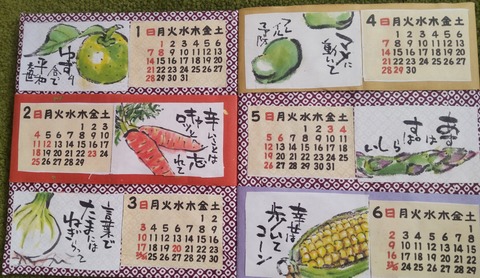 1 日月火水木金土
1 2 3 4 5 6
7 8 9 10 11 12 13
14 15 16 17 18 19 20
21 22 23 24 25 26 27
28 29 30 31
ゆずり
平和
2 日月火水木金土
1 2 3
4 5 6 7 8 9 10
11 12 13 14 15 16 17
18 19 20 21 22 23 24
25 26 27 28 29
辛いことは
キャロッと
忘れて
言葉で
たまには
ねぎらって
3 日月火水木金土
1 2
3 4 5 6 7 8 9
10 11 12 13 14 15 16
17 18 19 20 21 22 23
24/31 25 26 27 28 29 30
マメに
動いて
フレイル
予防
4 日月火水木金土
1 2 3 4 5 6
7 8 9 10 11 12 13
14 15 16 17 18 19 20
21 22 23 24 25 26 27
28 29 30
5 日月火水木金土
1 2 3 4
5 6 7 8 9 10 11
12 13 14 15 16 17 18
19 20 21 22 23 24 25
26 27 28 29 30 31
幸せは
歩いて
コーン
6 日月火水木金土
1
2 3 4 5 6 7 8
9 10 11 12 13 14 15
16 17 18 19 20 21 22
23/30 24 25 26 27 28 29